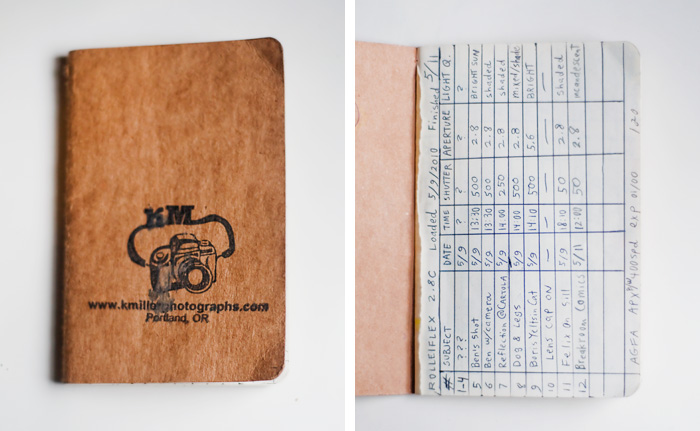 KM
www.kmillerphotographs.com
Portland, OR
ROLLEIFLEX 2.8C Loaded 5/9/2010 Finished 5/11
# SUBJECT DATE TIME SHUTTER APERTURE LIGHT Q.
1-4 ??? 5/9 ? ? ? ?
5 Ben's Shot 5/9 13:30 500 2.8 BRIGHT SUN
6 Ben w/camera 5/9 13:30 500 2.8 shaded
7 Reflection @ 5/9 14:00 250 2.8 shaded
8 Dog & Legs 5/9 14:00 500 2.8 mixed/shade
9 Boris Yeltsin Cat 5/9 14:10 500 5.6 BRIGHT
10 Lens cap on — — — — —
11 Felix on Sill 5/9 18:10 50 2.8 shaded
12 Breakroom Comics 5/11 12:00 50 2.8 incandescent
AGFA APX 400spd exp 01/00 120